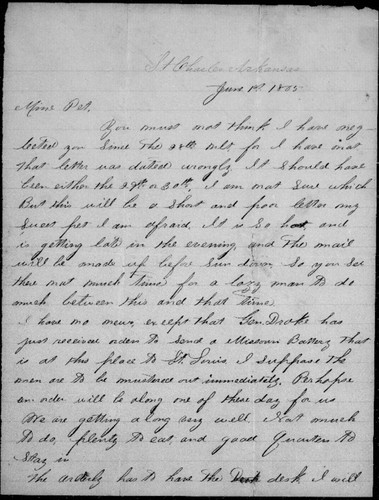 St Charles Arkansas
June 1st 1865
Mine Pet.
You must not think I have neg-
lected you Since the 28th ult for I have not,
that letter was dated wrongly. It should have
been either the 29th or 30th. I am not Sure which
But this will be a Short and poor letter my
Sweet pet I am afraid. It is So hot, and
is getting late in the evening, and the mail
will be made up befre Sun down. So you See
there not much time for a lazy man to do
much between this and that time.
I have no news, except that Gen.
just received order to Send a Missouri Battery that
is at this place to St. Louis I suppose the
men are to be mustered out immediately. Perhaps
an order will be along one of these day for us
We are getting along very well. Not much
to do, plenty to eat, and good Quarters to
Stay in
The has to have the desk I will